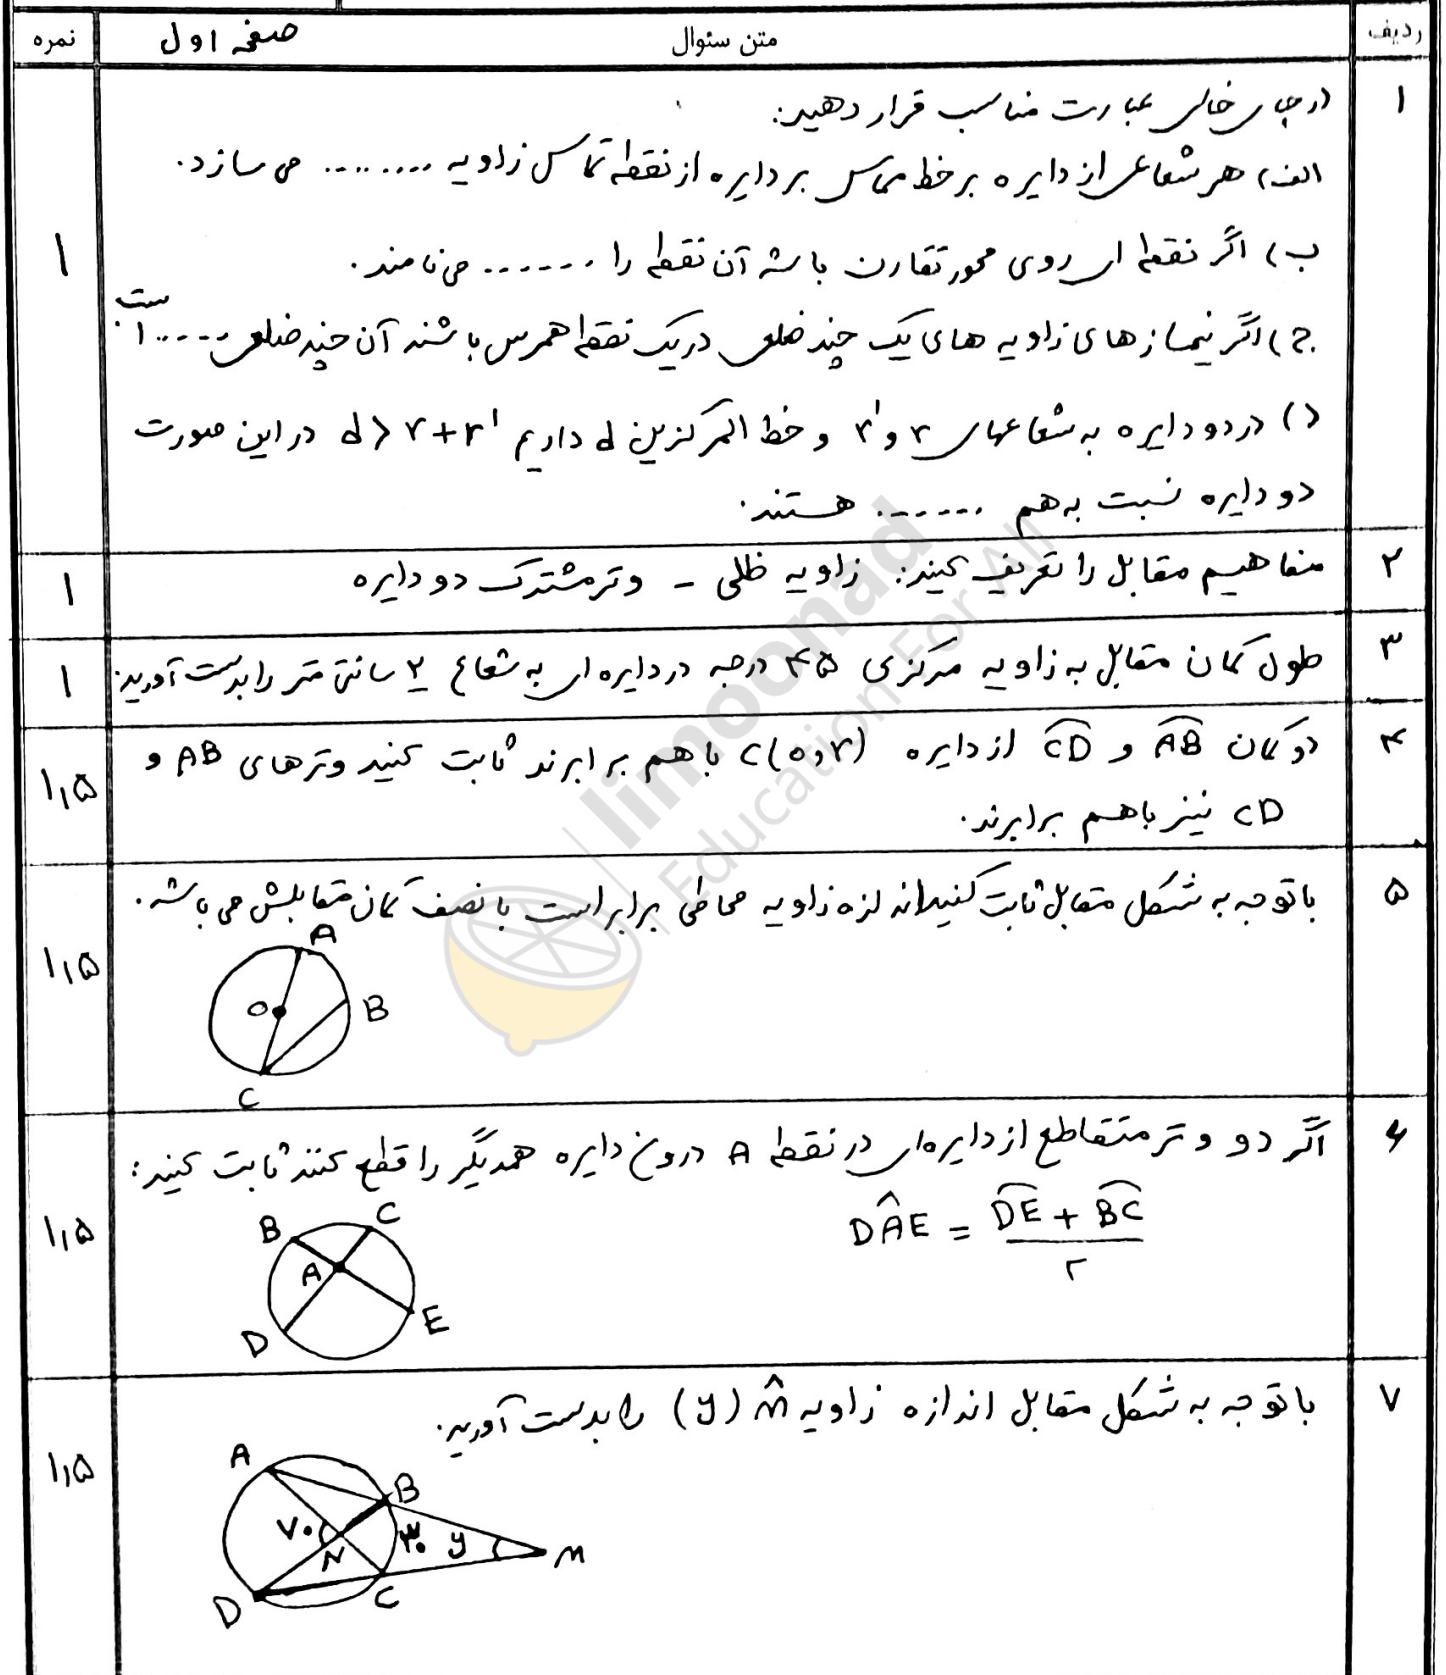 ردیف متن سئوال صفحه اول نمره
۱ در جای خالی عبارت مناسب قرار دهید:
الف) هر شعاعی از دایره بر خط مماس بر دایره از نقطه تماس زاویه ........ می سازد.
ب) اگر نقطه ای روی محور تقارن باشه آن نقطه را ...... می نامند.
۱
ج) اگر نیمساز های زاویه های یک چند ضلعی در یک نقطه همرس باشند آن چند ضلعی ..... است.
د) در دو دایره به شعاعهای r و r' و خط المرکزین d داریم d > r+r' در این صورت
دو دایره نسبت به هم ...... هستند.
۲ مفاهیم مقابل را تعریف کنید: زاویه ظلی - وتر مشترک دو دایره ۱
۳ طول کمان مقابل به زاویه مرکزی ۴۵ درجه در دایره ای به شعاع ۲ سانتی متر را بدست آورید: ۱
۴ دو کمان AB و CD از دایره C(o,r) با هم برابرند ثابت کنید وترهای AB و ۱,۵
CD نیز باهم برابرند.
۵ باتوجه به شکل مقابل ثابت کنید اندازه زاویه محاطی برابر است با نصف کمان مقابلش می باشه. ۱,۵
A
O
B
C
۶ اگر دو وتر متقاطع از دایره ای در نقطه A درون دایره همدیگر را قطع کنند ثابت کنید: ۱,۵
DÂE = DE + BC / ۲
B C
A
D E
۷ باتوجه به شکل مقابل اندازه زاویه m̂ (y) را بدست آورید. ۱,۵
A
B
۷۰ N ۳۰ y m
D C
limoonad
Education For All